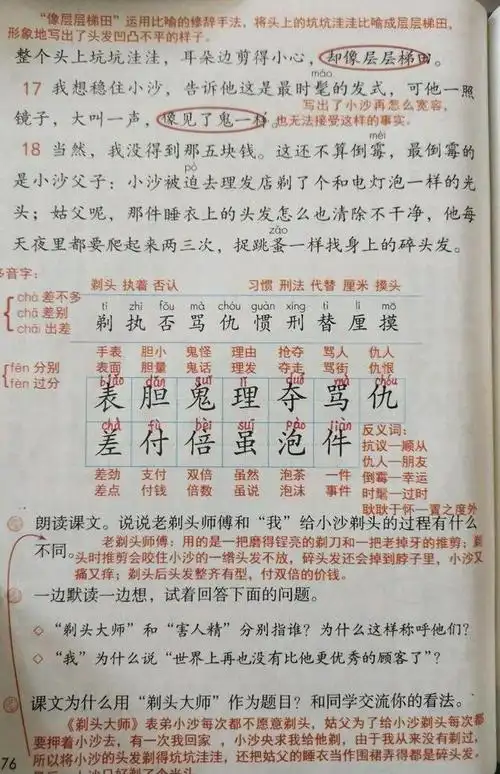 “像层层梯田”运用比喻的修辞手法，将头上的坑坑洼洼比喻成层层梯田。
形象地写出了头发凹凸不平的样子。
整个头上坑坑洼洼，耳朵边剪得小心，却像层层梯田。
máo
17 我想稳住小沙，告诉他这是最时髦的发式，可他一照
写出了小沙再怎么宽容，
镜子，大叫一声，像见了鬼一样。也无法接受这样的事实。
méi
18 当然，我没得到那五块钱。这还不算倒霉，最倒霉的
pò
是小沙父子：小沙被迫去理发店剃了个和电灯泡一样的光
头；姑父呢，那件睡衣上的头发怎么也清除不干净，他每
zǎo
天夜里都要爬起来两三次，捉跳蚤一样找身上的碎头发。
多音字：
剃头 执着 否认 习惯 刑法 代替 厘米 摸头
chà 差不多
chā 差别
chāi 出差
tì zhí fǒu mà chóu guàn xíng tì lí mō
剃 执 否 骂 仇 惯 刑 替 厘 摸
fēn 分别
fèn 过分
手表 胆小 鬼怪 理由 抢夺 骂人 仇人
表面 胆量 鬼话 理发 夺走 骂街 仇恨
biǎo dǎn guǐ lǐ duó mà chóu
表 胆 鬼 理 夺 骂 仇
chà fù bèi suī pào jiàn
差 付 倍 虽 泡 件
差劲 支付 双倍 虽然 泡茶 一件
差点 付钱 倍数 虽说 泡沫 事件
反义词：
抗议—顺从
仇人—朋友
倒霉—幸运
时髦—过时
耿耿于怀—置之度外
朗读课文。说说老剃头师傅和“我”给小沙剃头的过程有什么
不同。
老剃头师傅：用的是一把磨得锃亮的剃刀和一把老掉牙的推剪；剃
头时推剪会咬住小沙的一绺头发不放，碎头发还会掉到脖子里，小沙又
痛又痒；剃头后头发整齐有型，付双倍的价钱。
一边默读一边想，试着回答下面的问题。
◇ “剃头大师”和“害人精”分别指谁？为什么这样称呼他们？
◇ “我”为什么说“世界上再也没有比他更优秀的顾客了”？
课文为什么用“剃头大师”作为题目？和同学交流你的看法。
《剃头大师》表弟小沙每次都不愿意剃头，姑父为了给小沙剃头每次都
要押着小沙去，有一次我回家，小沙央求我给他剃，由于我从来没有剃过，
所以将小沙的头发剃得坑坑洼洼，还把姑父的睡衣当作围裙弄得都是碎头发，
76